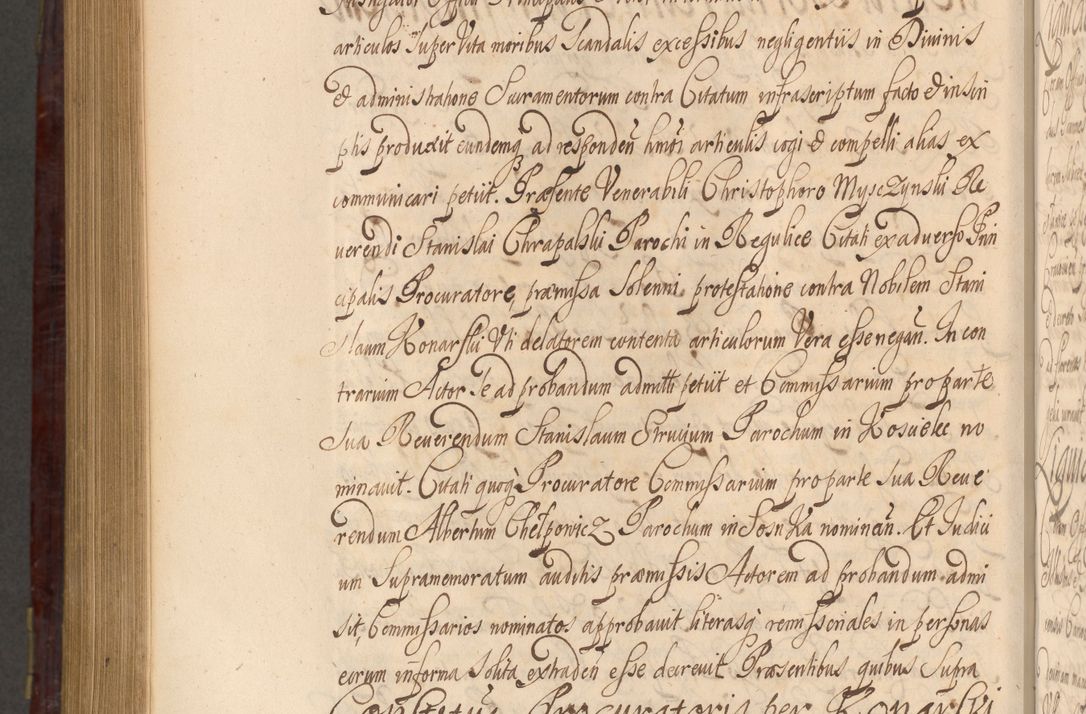 articulos super Vita moribus Scandalis excessibus negligentiis in Divinis
& administratione Sacramentorum contra Citatum infrascriptum facto & in scri
ptis produxit eundemq ad responden̄ hm̄oi articulis cogi & compelli alias ex
communicari petiit. Præsente Venerabili Christophoro Mysczynski Re
verendi Stanislai Chrapalski Parochi in Regulice Citati ex adverso Prin
cipalis Procuratore, præmissa Solenni protestatione contra Nobilem Stani
slaum Konarski Uti delatorem contenta articulorum Vera esse negan̄. In con
trarium Actor Se ad probandum admitti petiit et Commissarium pro parte
Sua Reverendum Stanislaum Strugum Parochum in Koscielec no
minavit. Citati quoq̀ Procuratore Commissarium pro parte Sua Reve
rendum Albertum Chelpowicz Parochum in Sosnka nominan̄. Et Judici
um Supramemoratum auditis præmissis Actorem ad probandum admi
sit, Commissarios nominatos approbavit literasq̀ remissoriales in personas
eorum in forma Solita extraden̄ esse decrevit Præsentibus quibus Supra
Constitut Procuratoris per Konarski